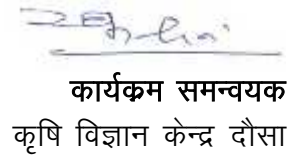 कार्यक्रम समन्वयक
कृषि विज्ञान केन्द्र दौसा